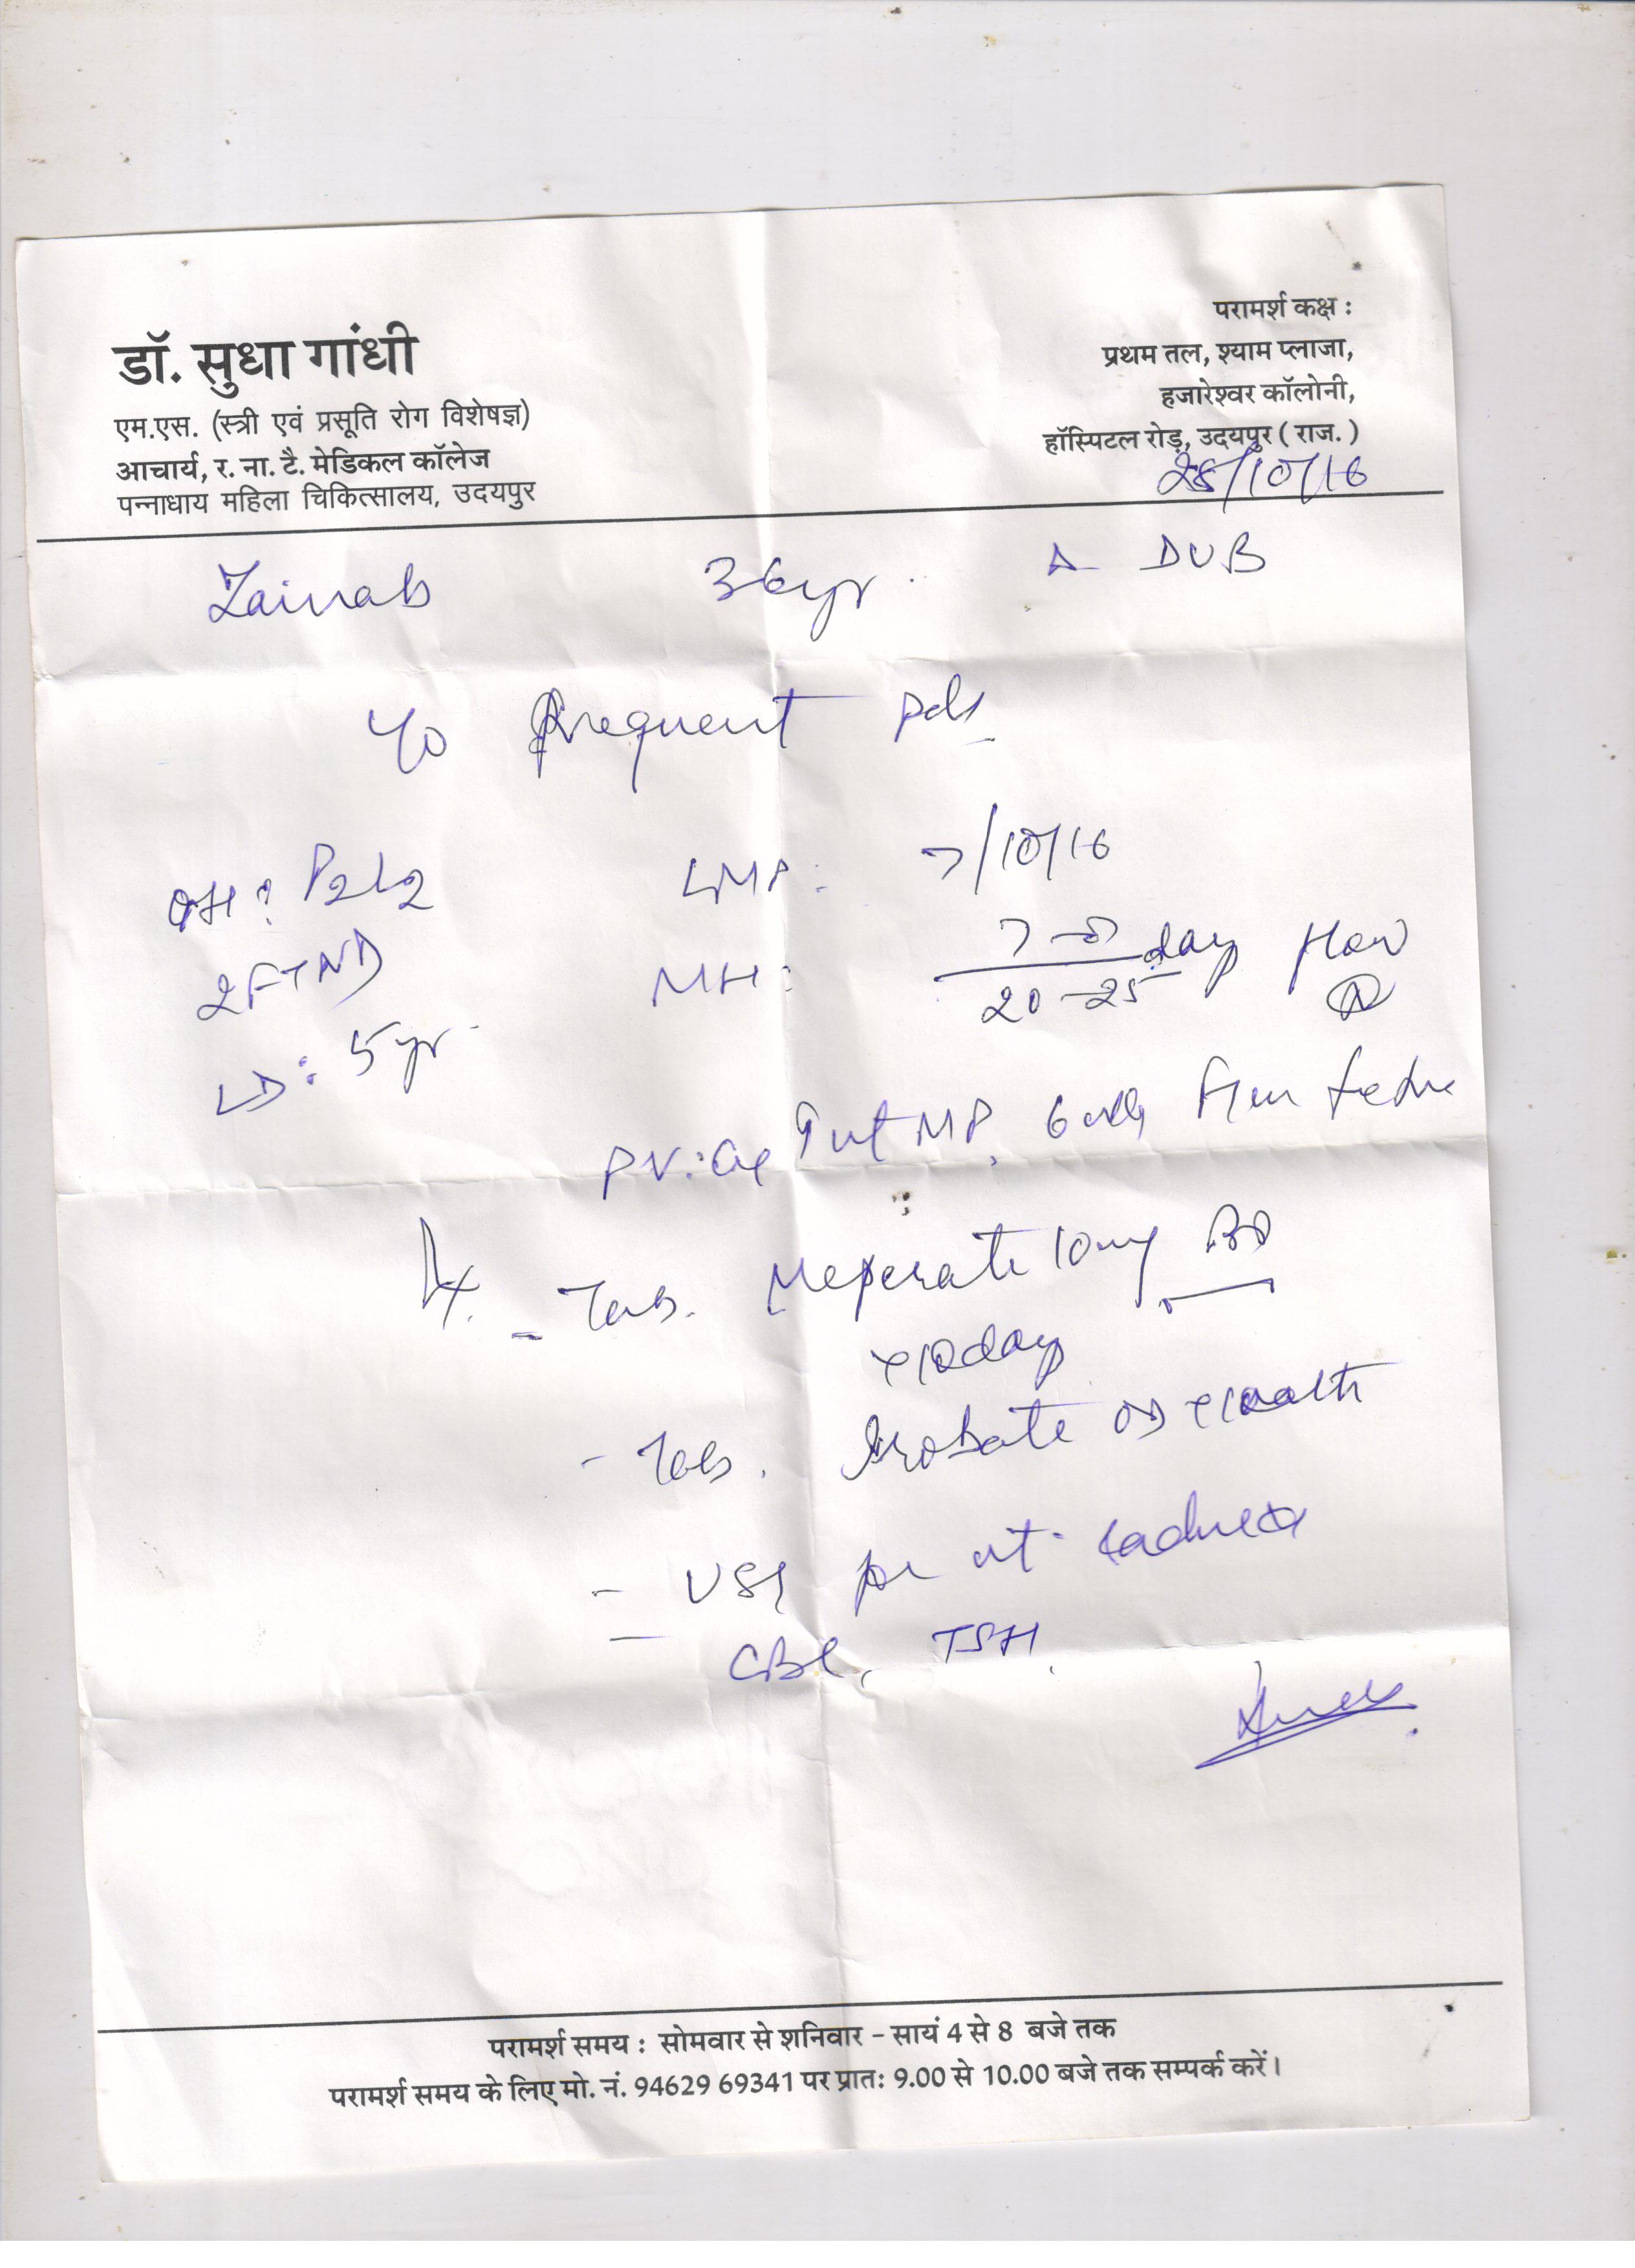 परामर्श कक्ष :
डॉ. सुधा गांधी
प्रथम तल, श्याम प्लाजा,
एम.एस. (स्त्री एवं प्रसूति रोग विशेषज्ञ)
हजारेश्वर कॉलोनी,
आचार्य, र. ना. टै. मेडिकल कॉलेज
हॉस्पिटल रोड़, उदयपुर ( राज. )
पन्नाधाय महिला चिकित्सालय, उदयपुर
28/10/16
Zainab 36yr. Δ DUB
frequent
OH: P2L2 LMP: 7/10/16
2FTND MH: 7-8/20-25 day flow
LD: 5yr
PV:
- Tab. Meperate 10mg BD
x10day
- Tab.
- USG for ut.
CBC, TSH
परामर्श समय : सोमवार से शनिवार - सायं 4 से 8 बजे तक
परामर्श समय के लिए मो. नं. 94629 69341 पर प्रातः 9.00 से 10.00 बजे तक सम्पर्क करें।